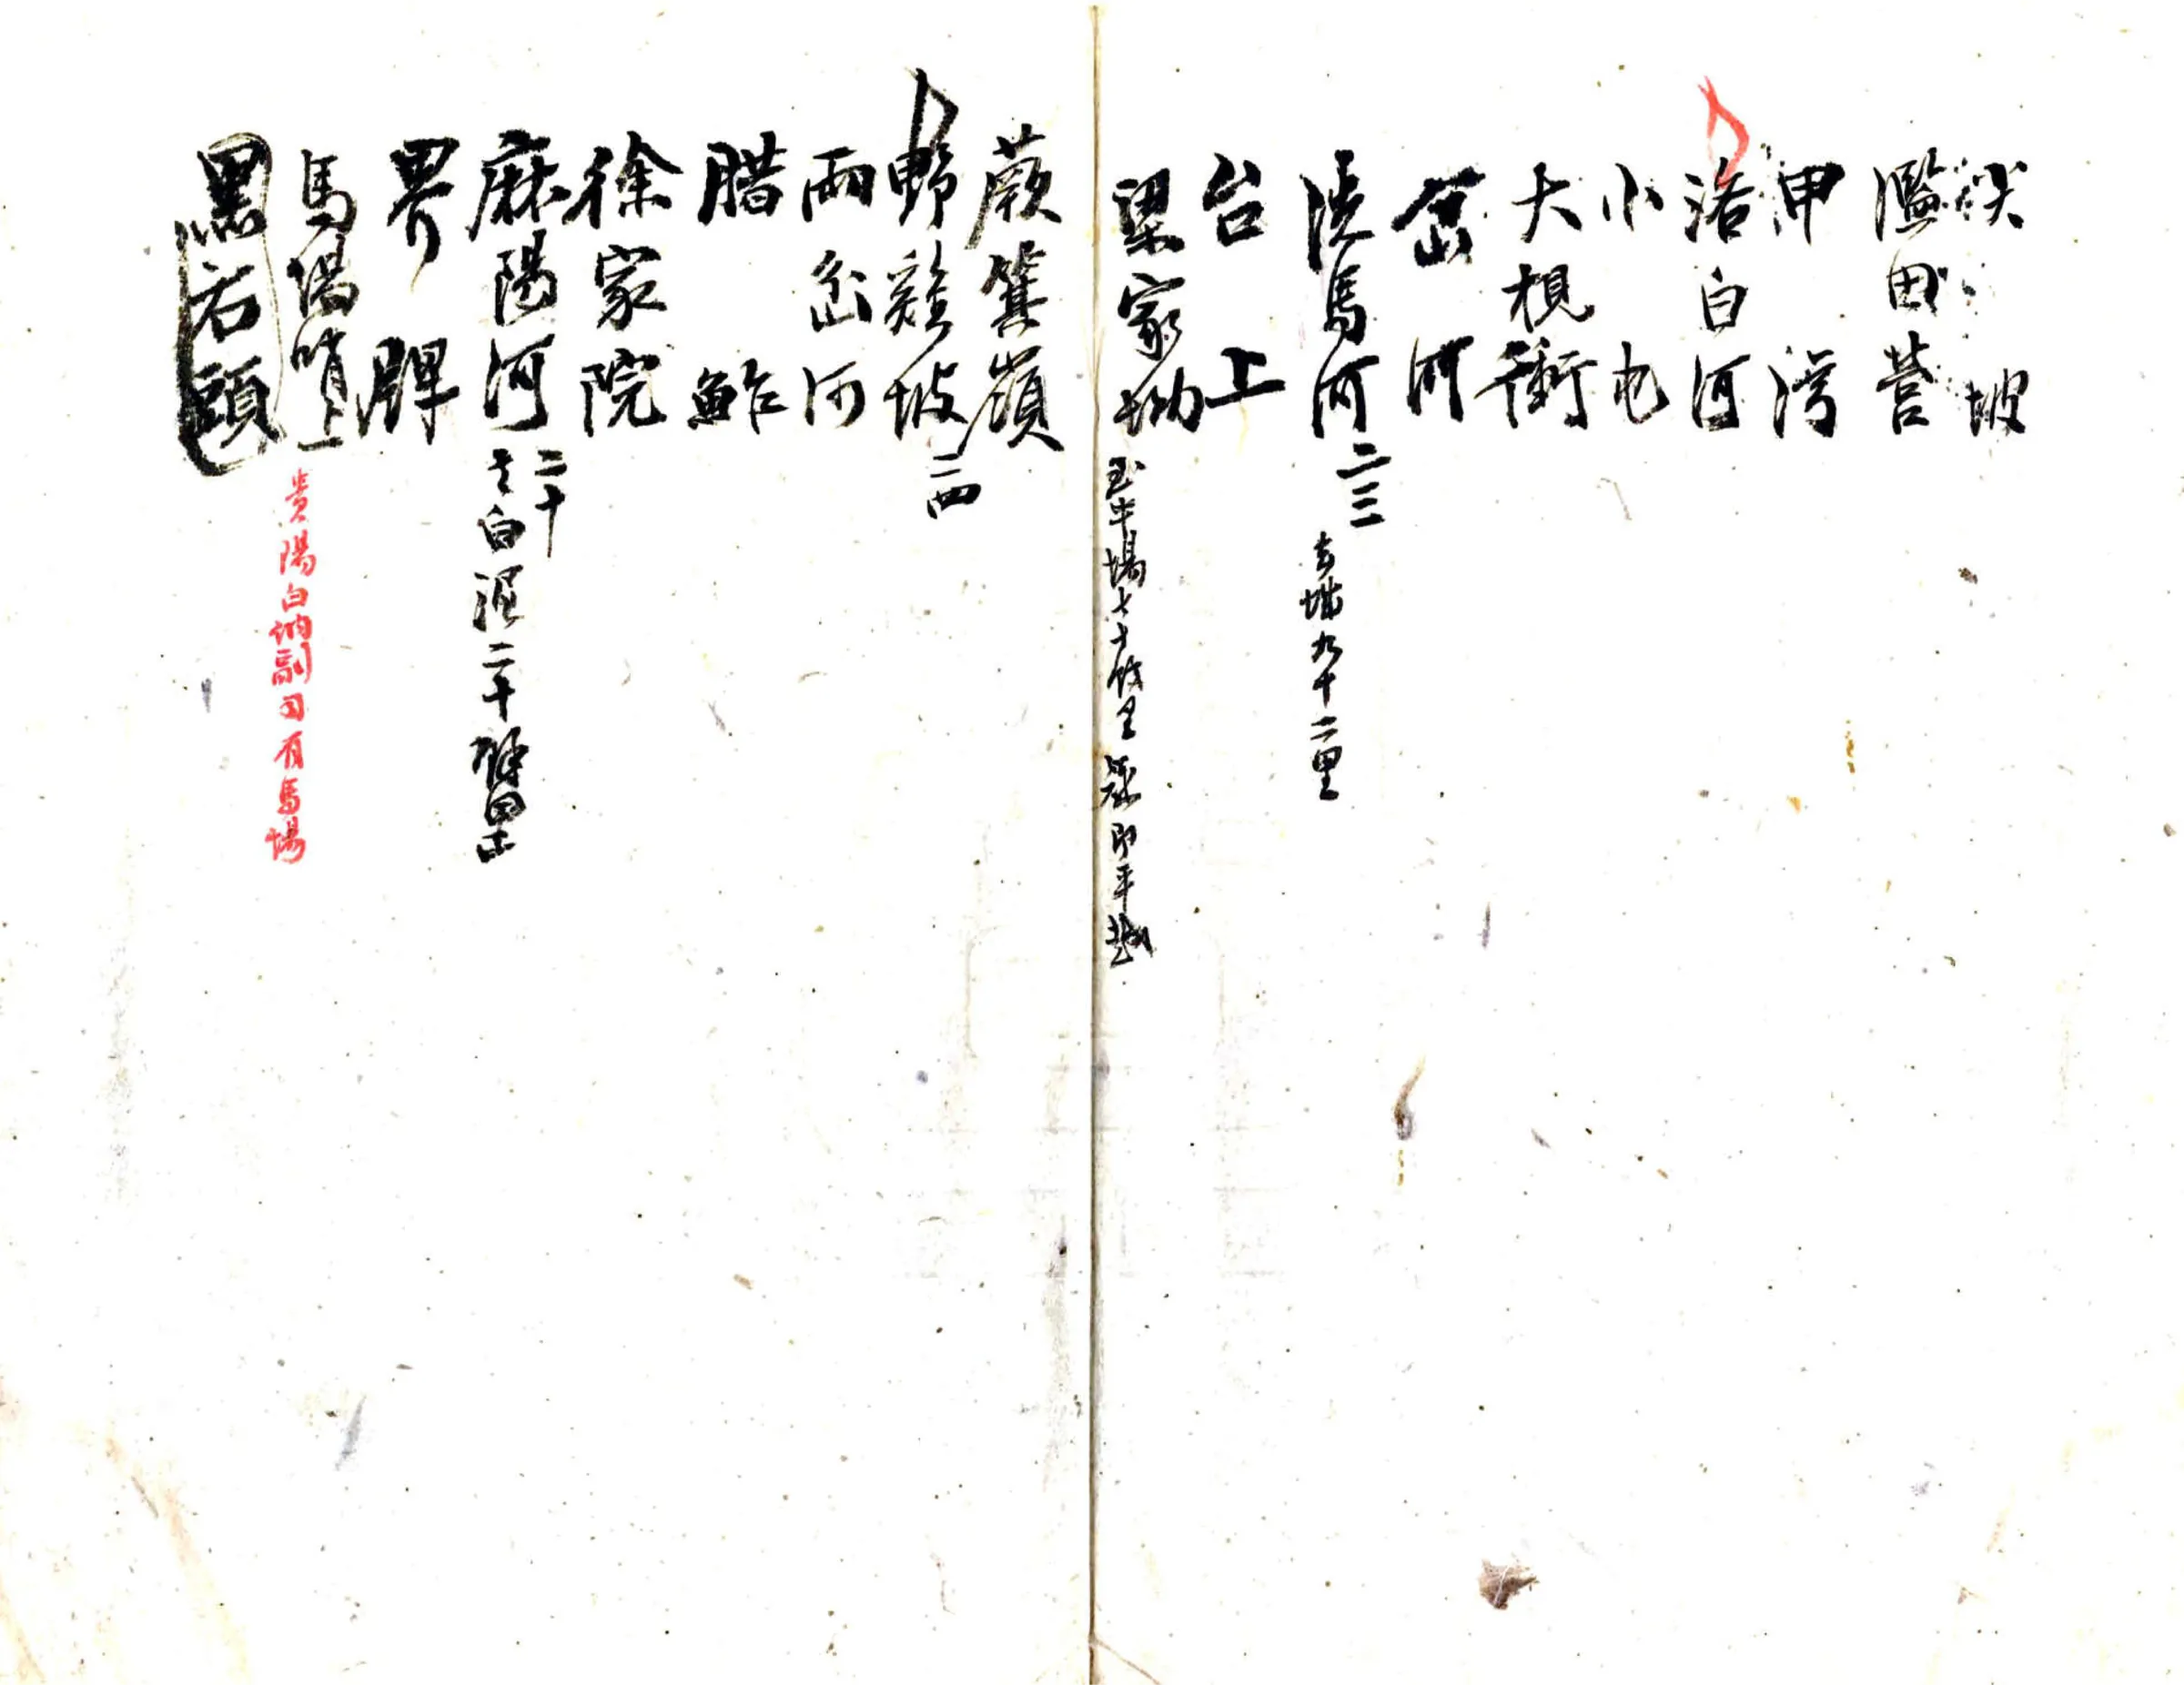 坡
濫田营
甲湾
洛白河
小屯
大梘衝
岔河
洗馬河 二三 去城九十二里
台上
梁家坳 至牛場七十餘里 即平越
蕨箕嶺
野雞坡 二四
兩岔河
腊鮓
徐家院
麻陽河 二十 去白泥二十
界牌
馬場哨上 貴陽白納副司有馬場
黑石頭